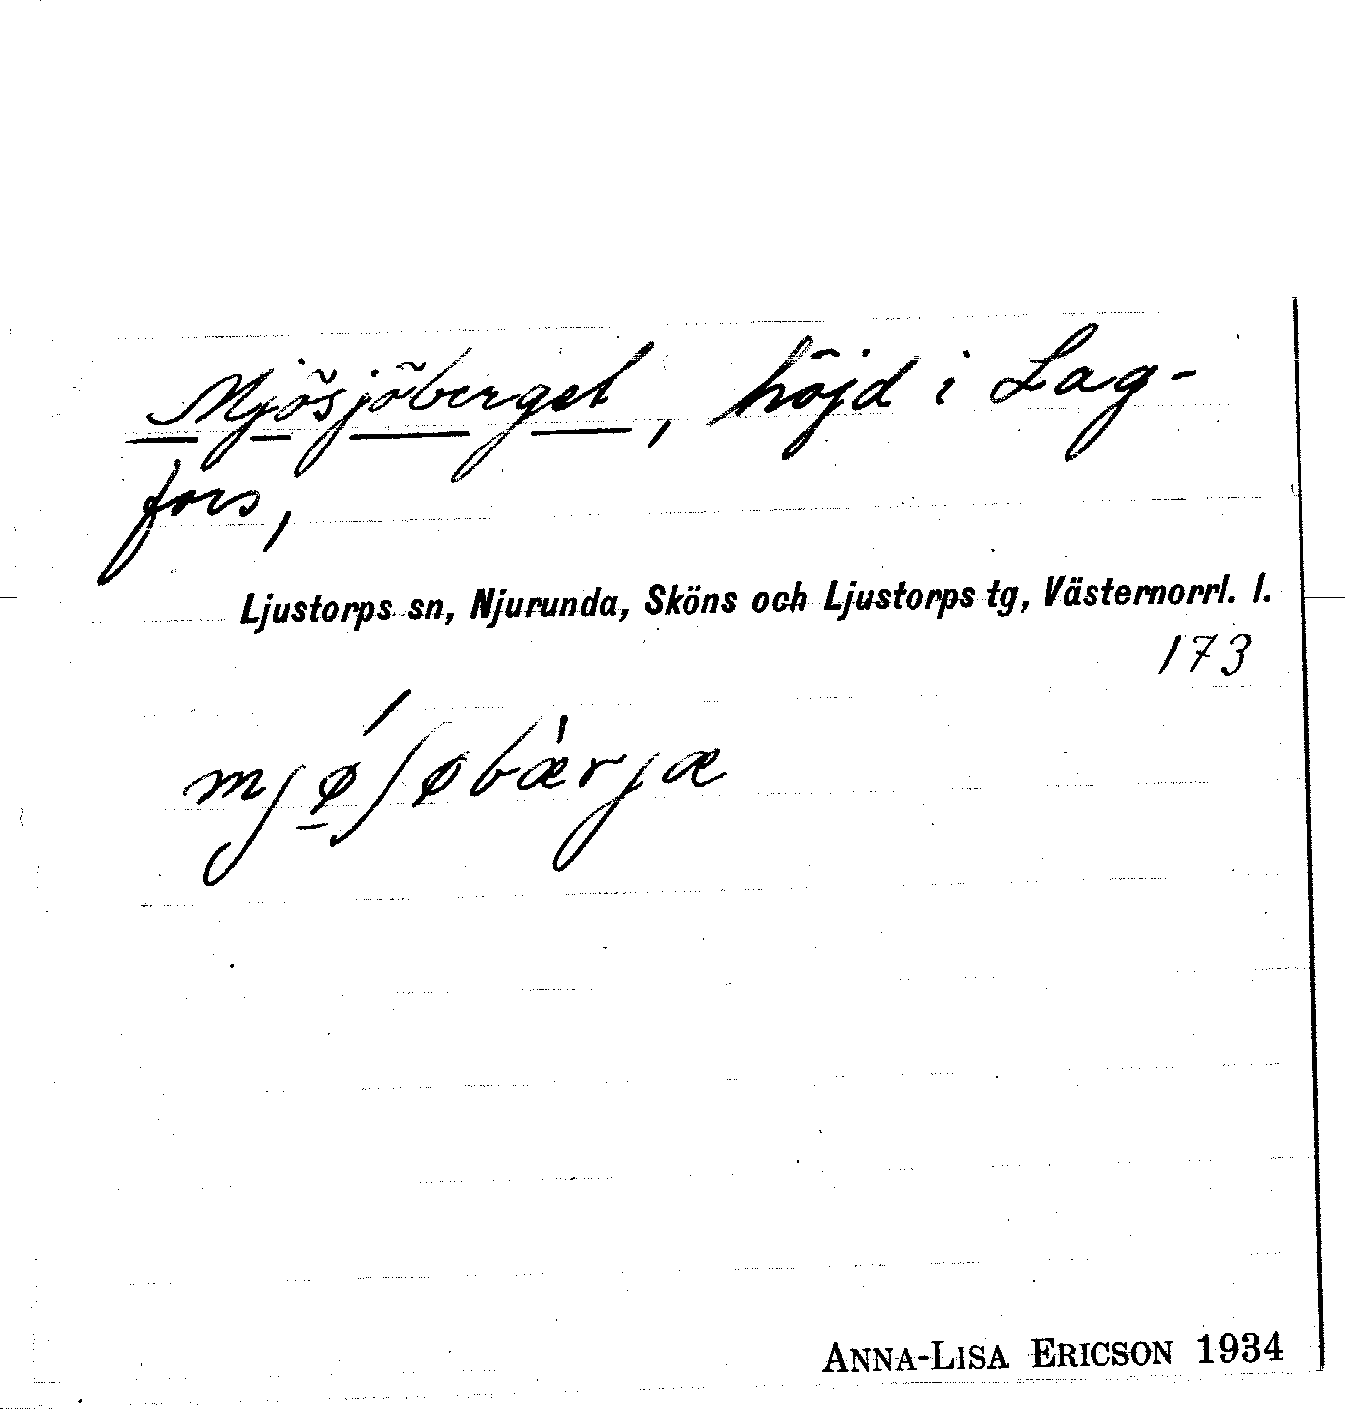 Mjösjöberget, höjd i Lag-
fors,
Ljustorps sn, Njurunda, Sköns och Ljustorps tg, Västernorrl. l.
173
mjǿ̱ʃøbæ̀rjæ
ANNA-LISA ERICSON 1934